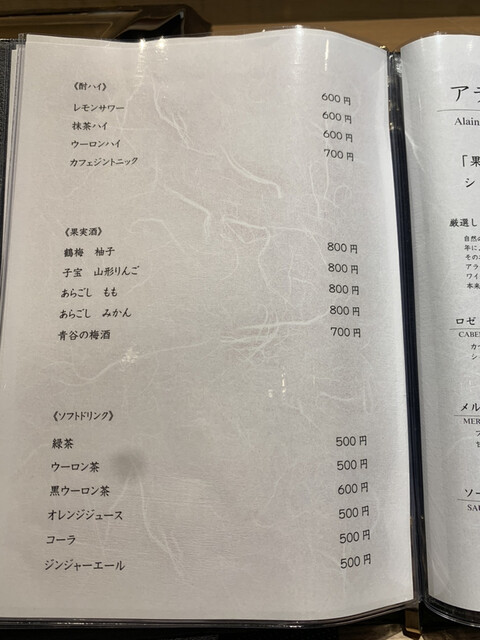 《酎ハイ》
レモンサワー 600円
抹茶ハイ 600円
ウーロンハイ 600円
カフェジントニック 700円
《果実酒》
鶴梅 柚子 800円
子宝 山形りんご 800円
あらごし もも 800円
あらごし みかん 800円
青谷の梅酒 700円
《ソフトドリンク》
緑茶 500円
ウーロン茶 500円
黒ウーロン茶 600円
オレンジジュース 500円
コーラ 500円
ジンジャーエール 500円
アラ
Alain
「果
シ
厳選し
自然
年に
その
アラ
ワイ
本来
ロゼ
CABE
カ
シ
メル
MER
ソー
SAU